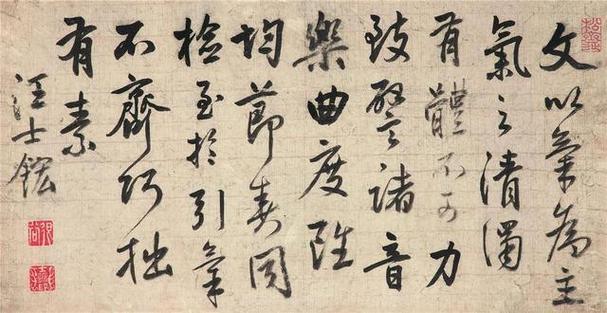 文以氣為主
氣之清濁
有體不可力
致譬諸音
樂曲度雖
均節奏同
檢至於引氣
不齊巧拙
有素
汪士鋐